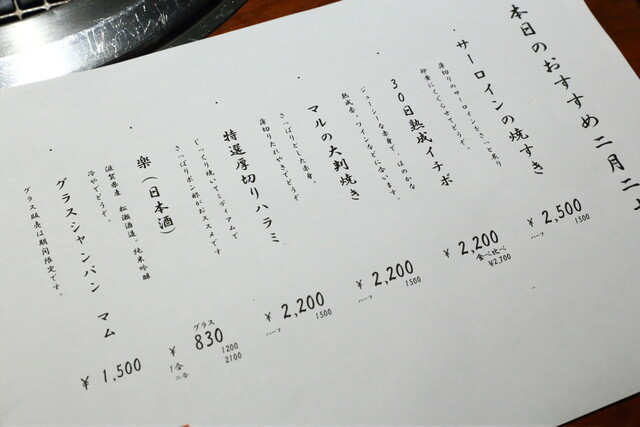 本日のおすすめ二月二十
・サーロインの焼すき
薄切りのサーロインをさっと炙り
卵黄にくぐらせてどうぞ。
¥2,500
ハーフ 1500
・30日熟成イチボ
ジューシーな赤身で、ほのかな
熟成香。ワインなどに合います。
¥2,200
食べ比べ
¥2,700
・マルの大判焼き
さっぱりとした赤身。
薄切りたれやきでどうぞ
¥2,200
ハーフ 1500
・特選厚切りハラミ
じっくり焼いてミディアムで
さっぱりポン酢がおススメです
¥2,200
ハーフ 1500
・楽(日本酒)
滋賀県産 松瀬酒造。純米吟醸
冷やでどうぞ。
グラス
¥830
1合 1200
二合 2100
・グラスシャンパン マム
グラス販売は期間限定です。
¥1,500